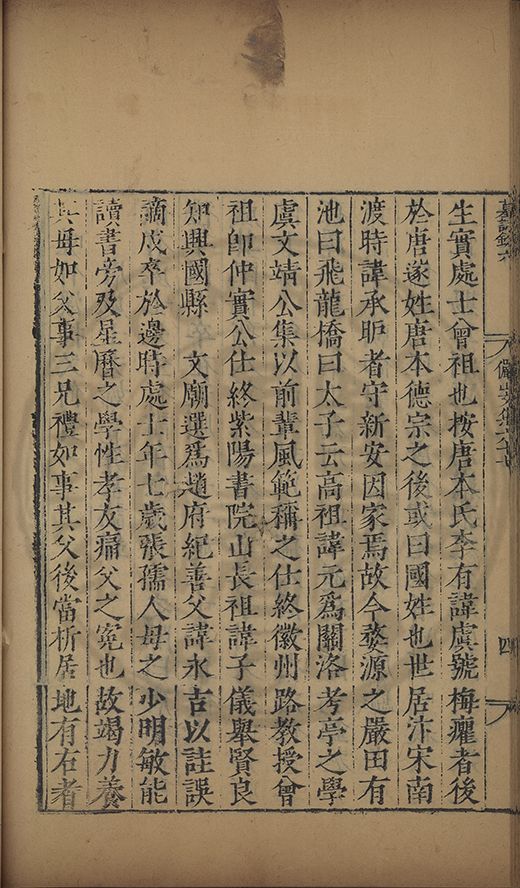 生實處士曾祖也按唐本氏李有諱虞號梅癯者後
於唐遂姓唐本德宗之後或曰國姓也世居汴宋南
渡時諱承旷者守新安因家焉故今婺源之嚴田有
池曰飛龍橋曰太子云高祖諱元爲關洛考亭之學
虞文靖公集以前輩風範稱之仕終徽州路教授曾
祖卽仲實公仕終紫陽書院山長祖諱子儀舉賢良
知興國縣 文廟選爲趙府紀善父諱永吉以註誤
謫戍卒於邊時處士年七歲張孺人母之少明敏能
讀書旁及星曆之學性孝友痛父之寃也故竭力養
其母如父事三兄禮如事其父後當析居地有右者